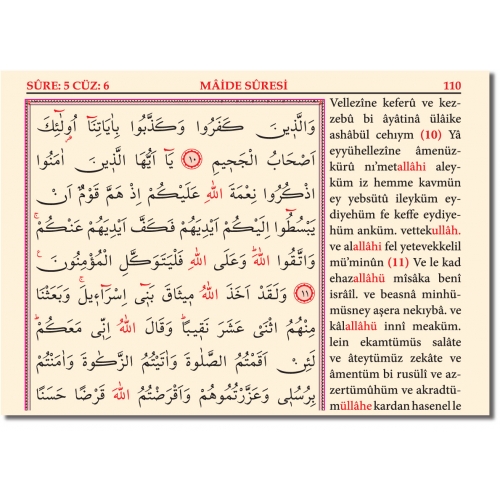 SÛRE: 5 CÜZ: 6 MÂİDE SÛRESİ 110
وَالَّذ۪ينَ كَفَرُوا وَكَذَّبُوا بِاٰيَاتِنَٓا اُو۬لٰٓئِكَ
اَصْحَابُ الْجَح۪يمِ ﴿١٠﴾ يَٓا اَيُّهَا الَّذ۪ينَ اٰمَنُوا
اذْكُرُوا نِعْمَةَ اللّٰهِ عَلَيْكُمْ اِذْ هَمَّ قَوْمٌ اَنْ
يَبْسُطُٓوا اِلَيْكُمْ اَيْدِيَهُمْ فَكَفَّ اَيْدِيَهُمْ عَنْكُمْۚ
وَاتَّقُوا اللّٰهَۜ وَعَلَى اللّٰهِ فَلْيَتَوَكَّلِ الْمُؤْمِنُونَ۟
﴿١١﴾ وَلَقَدْ اَخَذَ اللّٰهُ م۪يثَاقَ بَن۪ٓي اِسْرَٓائ۪لَۚ وَبَعَثْنَا
مِنْهُمُ اثْنَيْ عَشَرَ نَق۪يبًاۜ وَقَالَ اللّٰهُ اِنّ۪ي مَعَكُمْۜ
لَئِنْ اَقَمْتُمُ الصَّلٰوةَ وَاٰتَيْتُمُ الزَّكٰوةَ وَاٰمَنْتُمْ
بِرُسُل۪ي وَعَزَّرْتُمُوهُمْ وَاَقْرَضْتُمُ اللّٰهَ قَرْضًا حَسَنًا
Vellezîne keferû ve kez-
zebû bi âyâtinâ ülâike
ashâbül cehıym (10) Yâ
eyyühellezîne âmenüz-
kürû nı'metallâhi aley-
küm iz hemme kavmün
ey yebsütû ileyküm ey-
diyehüm fe keffe eydiye-
hüm anküm. vettekullâh.
ve alallâhi fel yetevekkelil
mü'minûn (11) Ve le kad
ehazallâhü mîsâka benî
isrâîl. ve beasnâ minhü-
müsney aşera nekıybâ. ve
kâlallâhü innî meaküm.
lein ekamtümüs salâte
ve âteytümüz zekâte ve
âmentüm bi rusülî ve az-
zertümûhüm ve akradtü-
müllâhe kardan hasenel le